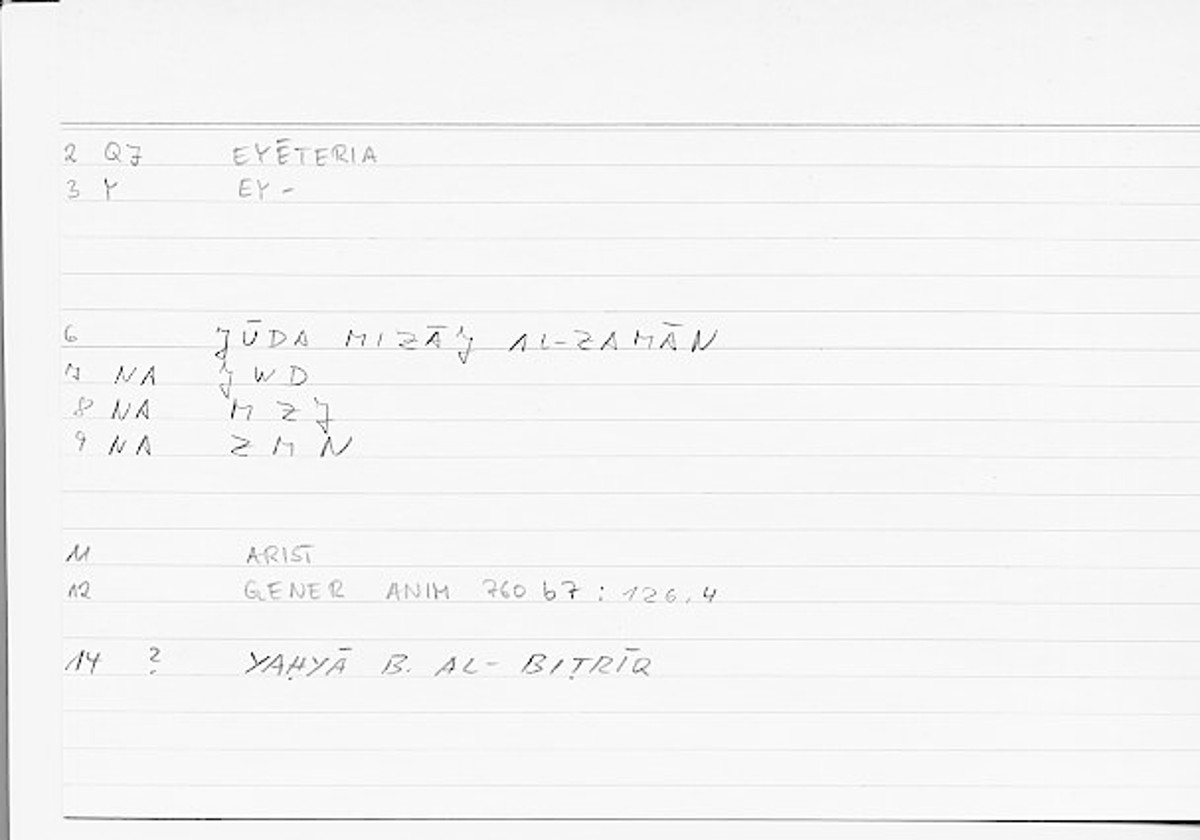 2 QJ EYĒTERIA
3 Y EY-
6 JŪDA MIZĀJ AL-ZAMĀN
7 NA JWD
8 NA MZJ
9 NA ZMN
11 ARIST
12 GENER ANIM 760 b7 : 126.4
14 ? YAḤYĀ B. AL-BIṬRĪQ